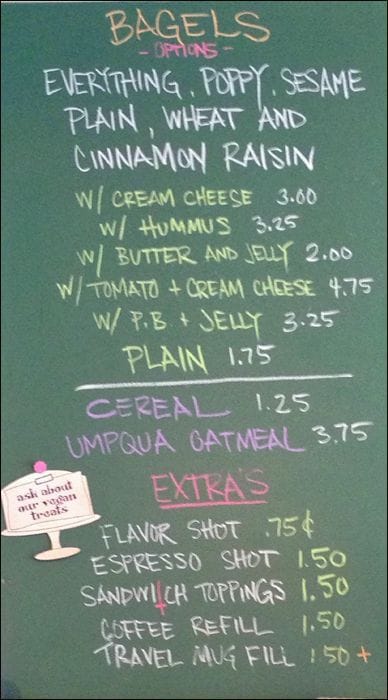 BAGELS
- OPTIONS -
EVERYTHING, POPPY, SESAME
PLAIN, WHEAT AND
CINNAMON RAISIN
W/ CREAM CHEESE 3.00
W/ HUMMUS 3.25
W/ BUTTER AND JELLY 2.00
W/ TOMATO + CREAM CHEESE 4.75
W/ P.B. + JELLY 3.25
PLAIN 1.75
CEREAL 1.25
UMPQUA OATMEAL 3.75
EXTRA'S
ask about
our vegan
treats
FLAVOR SHOT .75¢
ESPRESSO SHOT 1.50
SANDWICH TOPPINGS 1.50
COFFEE REFILL 1.50
TRAVEL MUG FILL 1.50 +